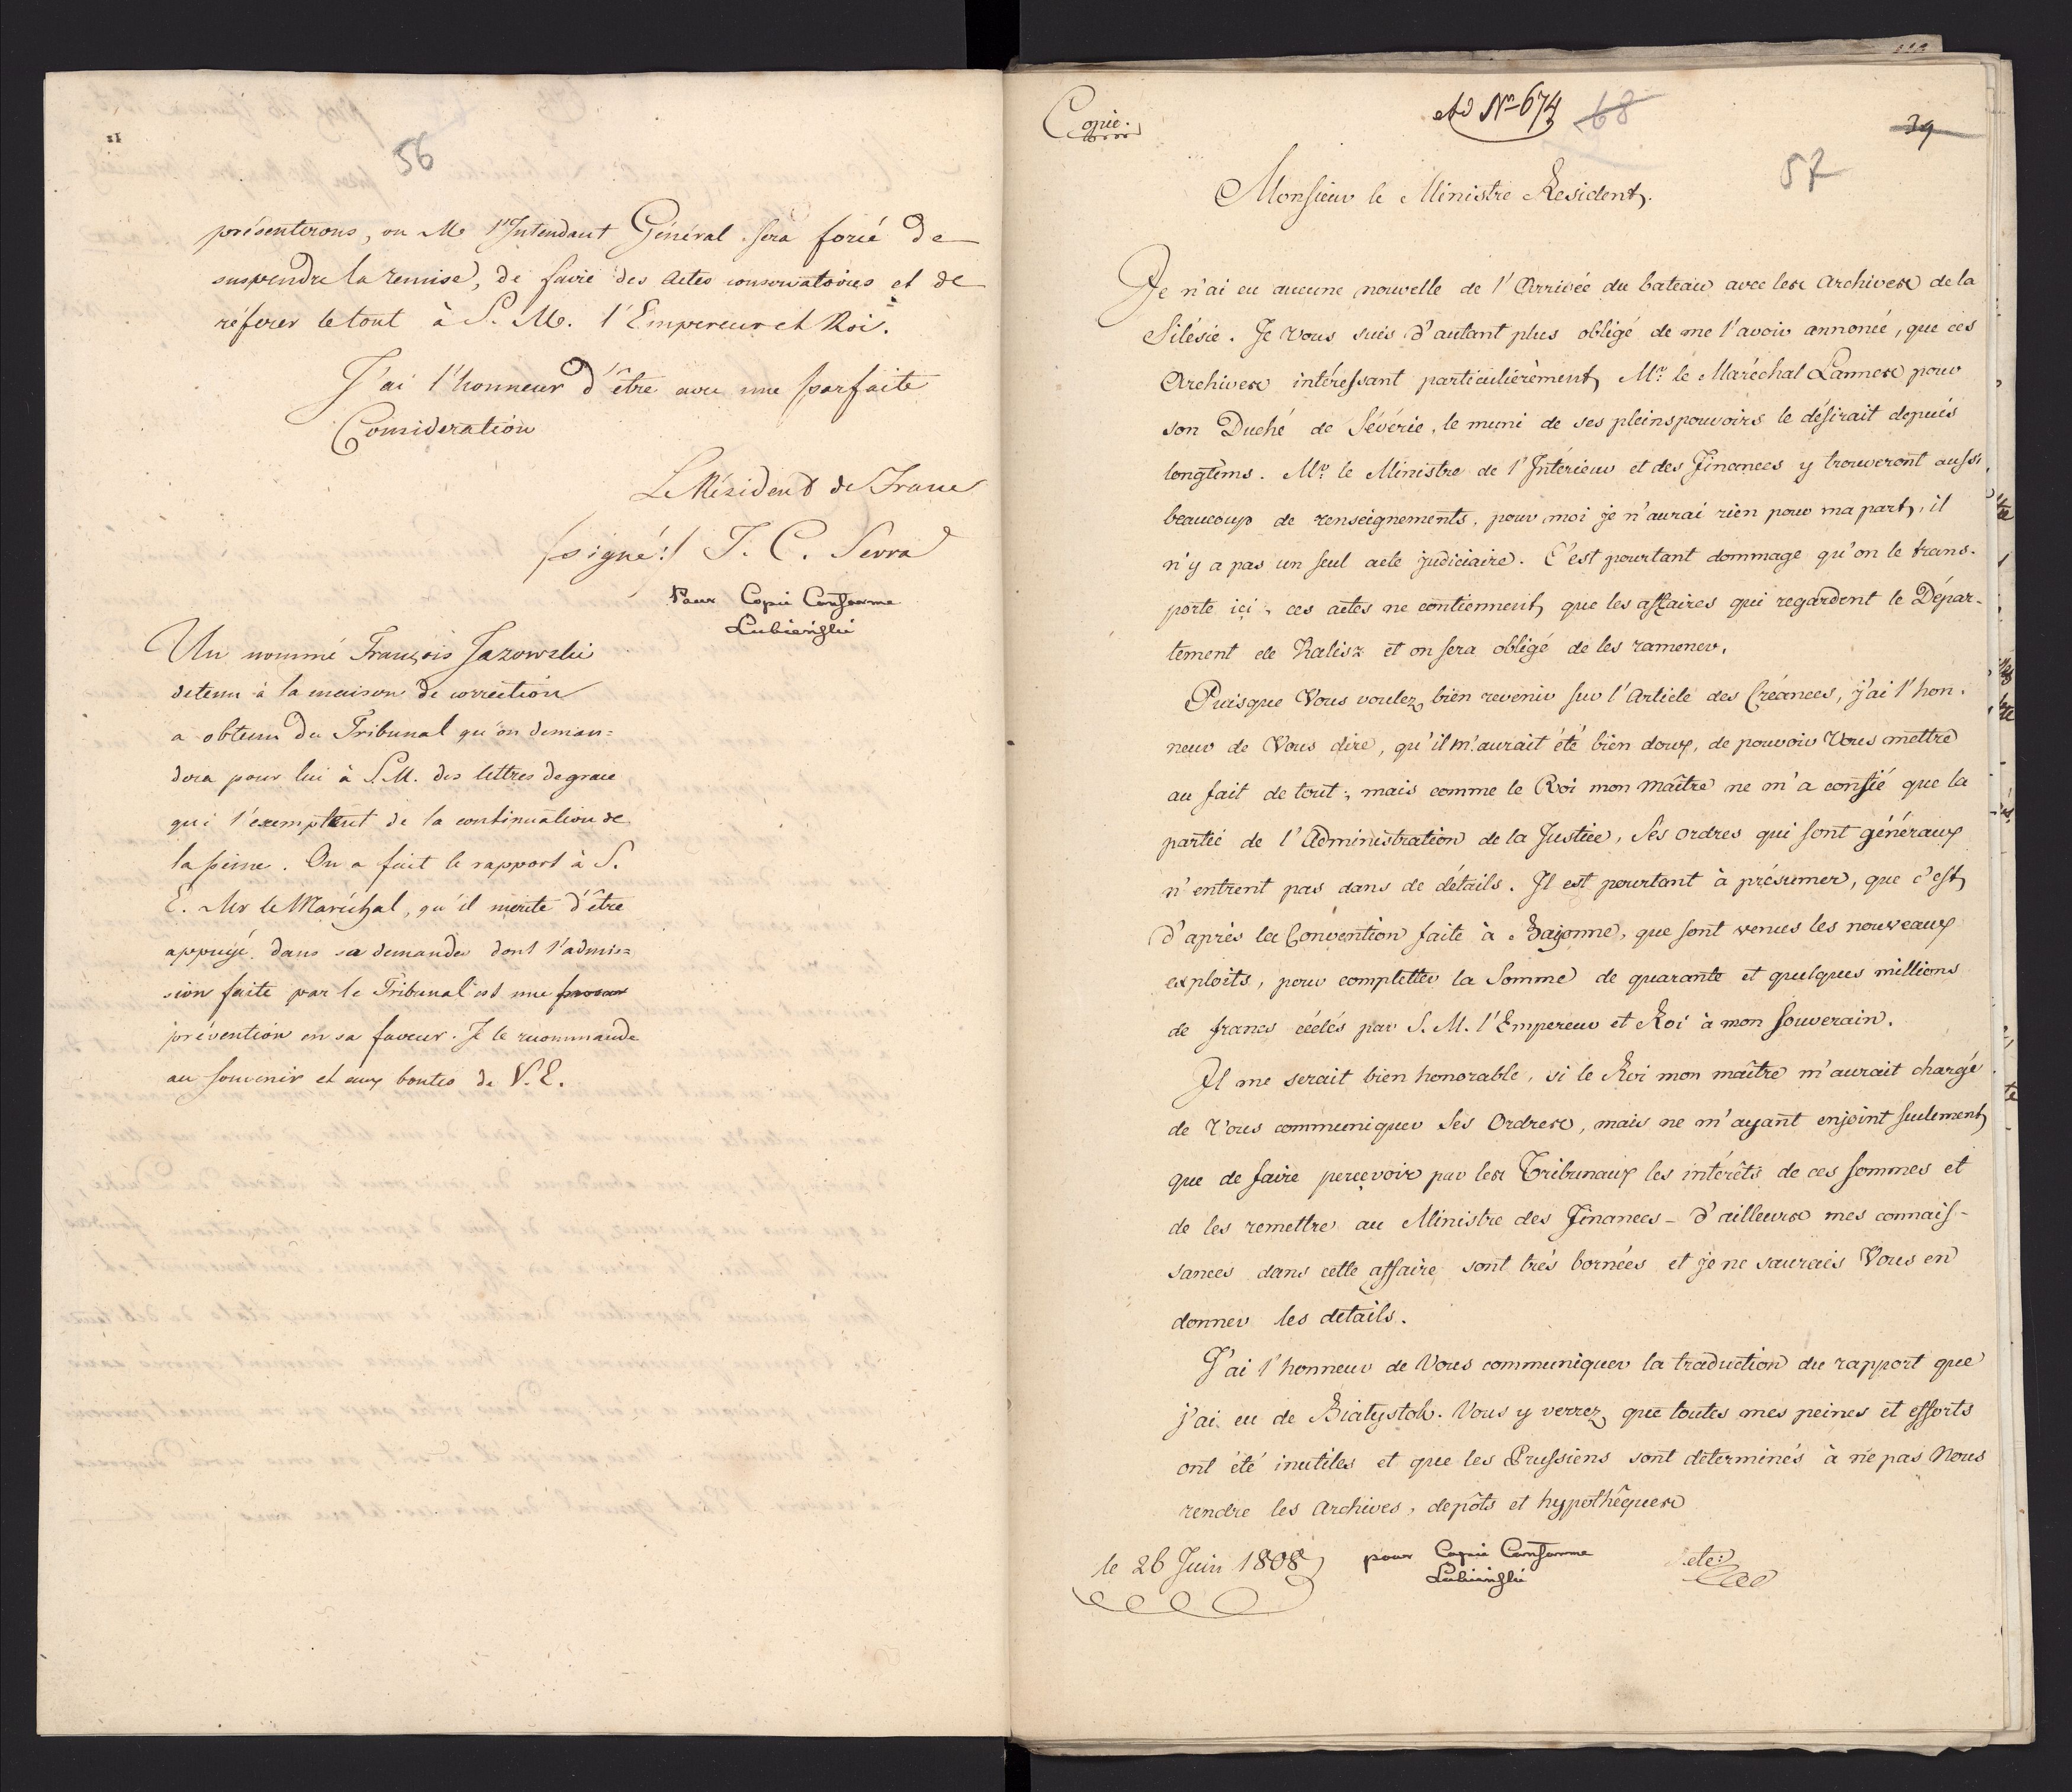 56
présenterons, ou Mr l'Intendant Général sera forcé de
suspendre la remise, de faire des Actes conservatoires et de
réferer le tout à S. M. l'Empereur et Roi.
J'ai l'honneur d'être avec une parfaite
Consideration
Le Résident de France
/signé:/ J. C. Serra
Pour Copie Conforme
Lubieński
Un nommé François Jazowski
detenu à la maison de correction
a obtenu du Tribunal qu'on deman=
dera pour lui à S.M. des lettres de grace
qui l'exemptent de la continuation de
la peine. On a fait le rapport à S.
E. Mr le Maréchal, qu'il merite d'être
appuyé dans sa demande dont l'admis=
sion faite par le Tribunal est une
prévention en sa faveur. Je le recommande
au souvenir et aux bontés de V. E.
Copie.
ad No 674
68
39
57
Monsieur le Ministre Resident,
Je n'ai eu aucune nouvelle de l'Arrivée du bateau avec les Archives de la
Silésie. Je Vous suis d'autant plus obligé de me l'avoir annoncé, que ces
Archives intéressant particulièrement, Mr. le Maréchal Lannes pour
son Duché de Sévérie, le muni de ses pleinspouvoirs le désirait depuis
longtems. Mr. le Ministre de l'Intérieur et des Finances y trouveront aussi
beaucoup de renseignements, pour moi je n'aurai rien pour ma part, il
n'y a pas un seul acte judiciaire. C'est pourtant dommage qu'on le trans-
porte ici, ces actes ne contiennent, que les affaires qui regardent le Dépar-
tement de Kalisz et on sera obligé de les ramener.
Puisque Vous voulez bien revenir sur l'Article des Créances, j'ai l'hon-
neur de Vous dire, qu'il m'aurait été bien doux, de pouvoir Vous mettre
au fait de tout; mais comme le Roi mon maître ne m'a confié que la
partie de l'Administration de la Justice, Ses ordres qui sont généraux
n'entrent pas dans de détails. Il est pourtant à présumer, que c'est,
d'après la Convention faite à Bajonne, que sont venus les nouveaux
exploits, pour completter la Somme de quarante et quelques millions
de francs cédés par S. M. l'Empereur et Roi à mon Souverain.
Il me serait bien honorable, si le Roi mon maître m'aurait chargé
de Vous communiquer Ses Ordres, mais ne m'ayant enjoint seulement,
que de faire perçevoir par les Tribunaux les intérêts de ces sommes et
de les remettre au Ministre des Finances - d'ailleurs mes connais-
sances dans cette affaire sont très bornées et je ne saurais Vous en
donner les details.
J'ai l'honneur de Vous communiquer la traduction du rapport que
j'ai eu de Białystok. Vous y verrez, que toutes mes peines et efforts
ont été inutiles et que les Prussiens sont determinés à ne pas Nous
rendre les Archives, depôts et hypothêques
le 26 Juin 1808
pour Copie Conforme
Lubieński
etc: